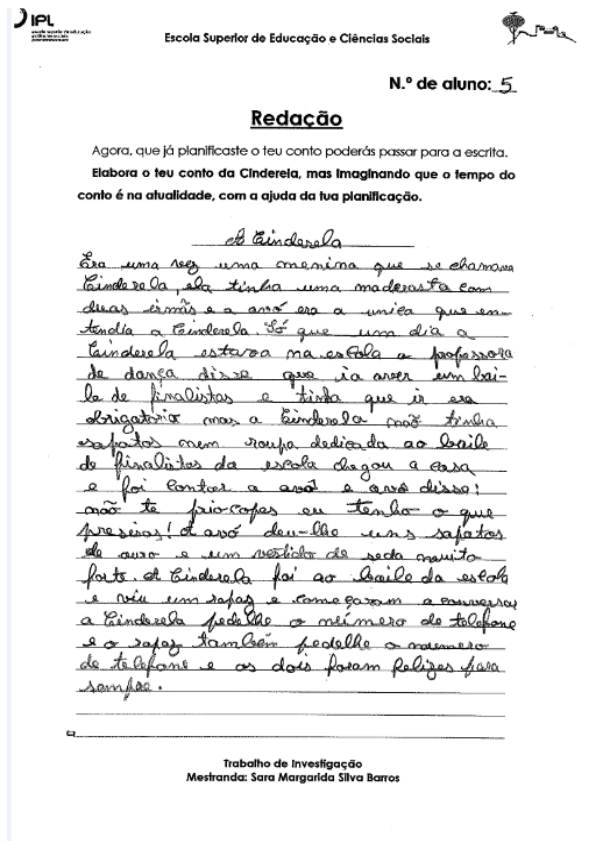 IPL
Escola Superior de Educação e Ciências Sociais
N.º de aluno: 5
Redação
Agora, que já planificaste o teu conto poderás passar para a escrita.
Elabora o teu conto da Cinderela, mas imaginando que o tempo do
conto é na atualidade, com a ajuda da tua planificação.
A Cinderela
Era uma vez uma menina que se chamava
Cinderela, ela tinha uma maderasta com
duas irmãs e a avó era a unica que en-
tendia a Cinderela. Só que um dia a
Cinderela estava na escola a professora
de dança disse que ia aver um bai-
le de finalistas e tinha que ir era
obrigatorio mas a Cinderela não tinha
sapatos nem roupa dedicada ao baile
de finalistas da escola chegou a casa
e foi contar a avó e avó disse:
não te priocopes eu tenho o que
presisas! A avó deu-lhe uns sapatos
de ouro e um vestido de seda muito
forte. A Cinderela foi ao baile da escola
e viu um rapaz e começaram a conversar
a Cinderela pedelhe o número de telefone
e o rapaz também pedelhe o numero
de telefone e os dois foram felizes para
sempre.
Trabalho de Investigação
Mestranda: Sara Margarida Silva Barros